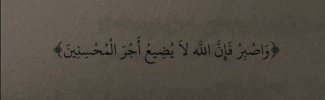 ﴿وَاصْبِرْ فَإِنَّ اللَّه لاَ يُضِيعُ أَجْرَ الْمُحْسِنِينَ﴾